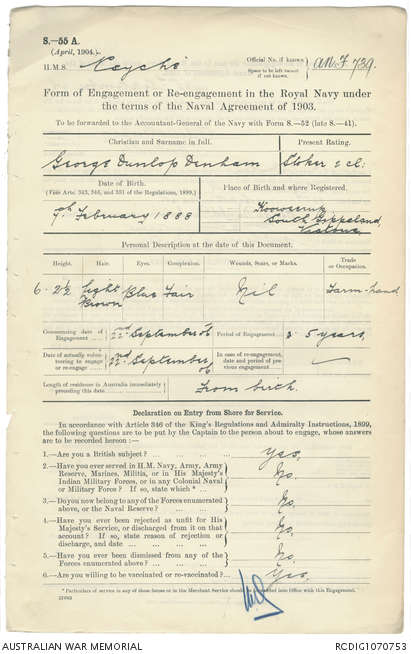 S.—55 A.
(April, 1904.)
H.M.S. Psyche
Official No. (if known) A.N.F. 739.
Space to be left vacant if not known.
Form of Engagement or Re-engagement in the Royal Navy under
the terms of the Naval Agreement of 1903.
To be forwarded to the Accountant-General of the Navy with Form S.—52 (late S.—41).
Christian and Surname in full. Present Rating.
George Dunlop Denham Stoker 2 cl:
Date of Birth.
(Vide Arts. 343, 346, and 351 of the Regulations, 1899.)
Place of Birth and where Registered.
7th February 1888
South Gippsland,
Victoria
Personal Description at the date of this Document.
Height. Hair. Eyes. Complexion. Wounds, Scars, or Marks. Trade or Occupation.
6 - 2½ Light Brown Blue Fair Nil Farm-hand
Commencing date of Engagement 22nd September 06 Period of Engagement 5 years,
Date of actually volunteering to engage or re-engage 22nd September 06 In case of re-engagement, date and period of previous engagement
Length of residence in Australia immediately preceding this date From birth.
Declaration on Entry from Shore for Service.
In accordance with Article 346 of the King's Regulations and Admiralty Instructions, 1899,
the following questions are to be put by the Captain to the person about to engage, whose answers
are to be recorded hereon :—
1.—Are you a British subject? ... Yes,
2.—Have you ever served in H.M. Navy, Army, Army
Reserve, Marines, Militia, or in His Majesty's
Indian Military Forces, or in any Colonial Naval
or Military Force? If so, state which * ... No.
3.—Do you now belong to any of the Forces enumerated
above, or the Naval Reserve? ... No,
4.—Have you ever been rejected as unfit for His
Majesty's Service, or discharged from it on that
account? If so, state reason of rejection or
discharge, and date ... No,
5.—Have you ever been dismissed from any of the
Forces enumerated above? ... No,
6.—Are you willing to be vaccinated or re-vaccinated? ... Yes,
* Particulars of service in any of these or in the Merchant Service should be inserted into Office with this Engagement.
AUSTRALIAN WAR MEMORIAL
RCDIG1070753